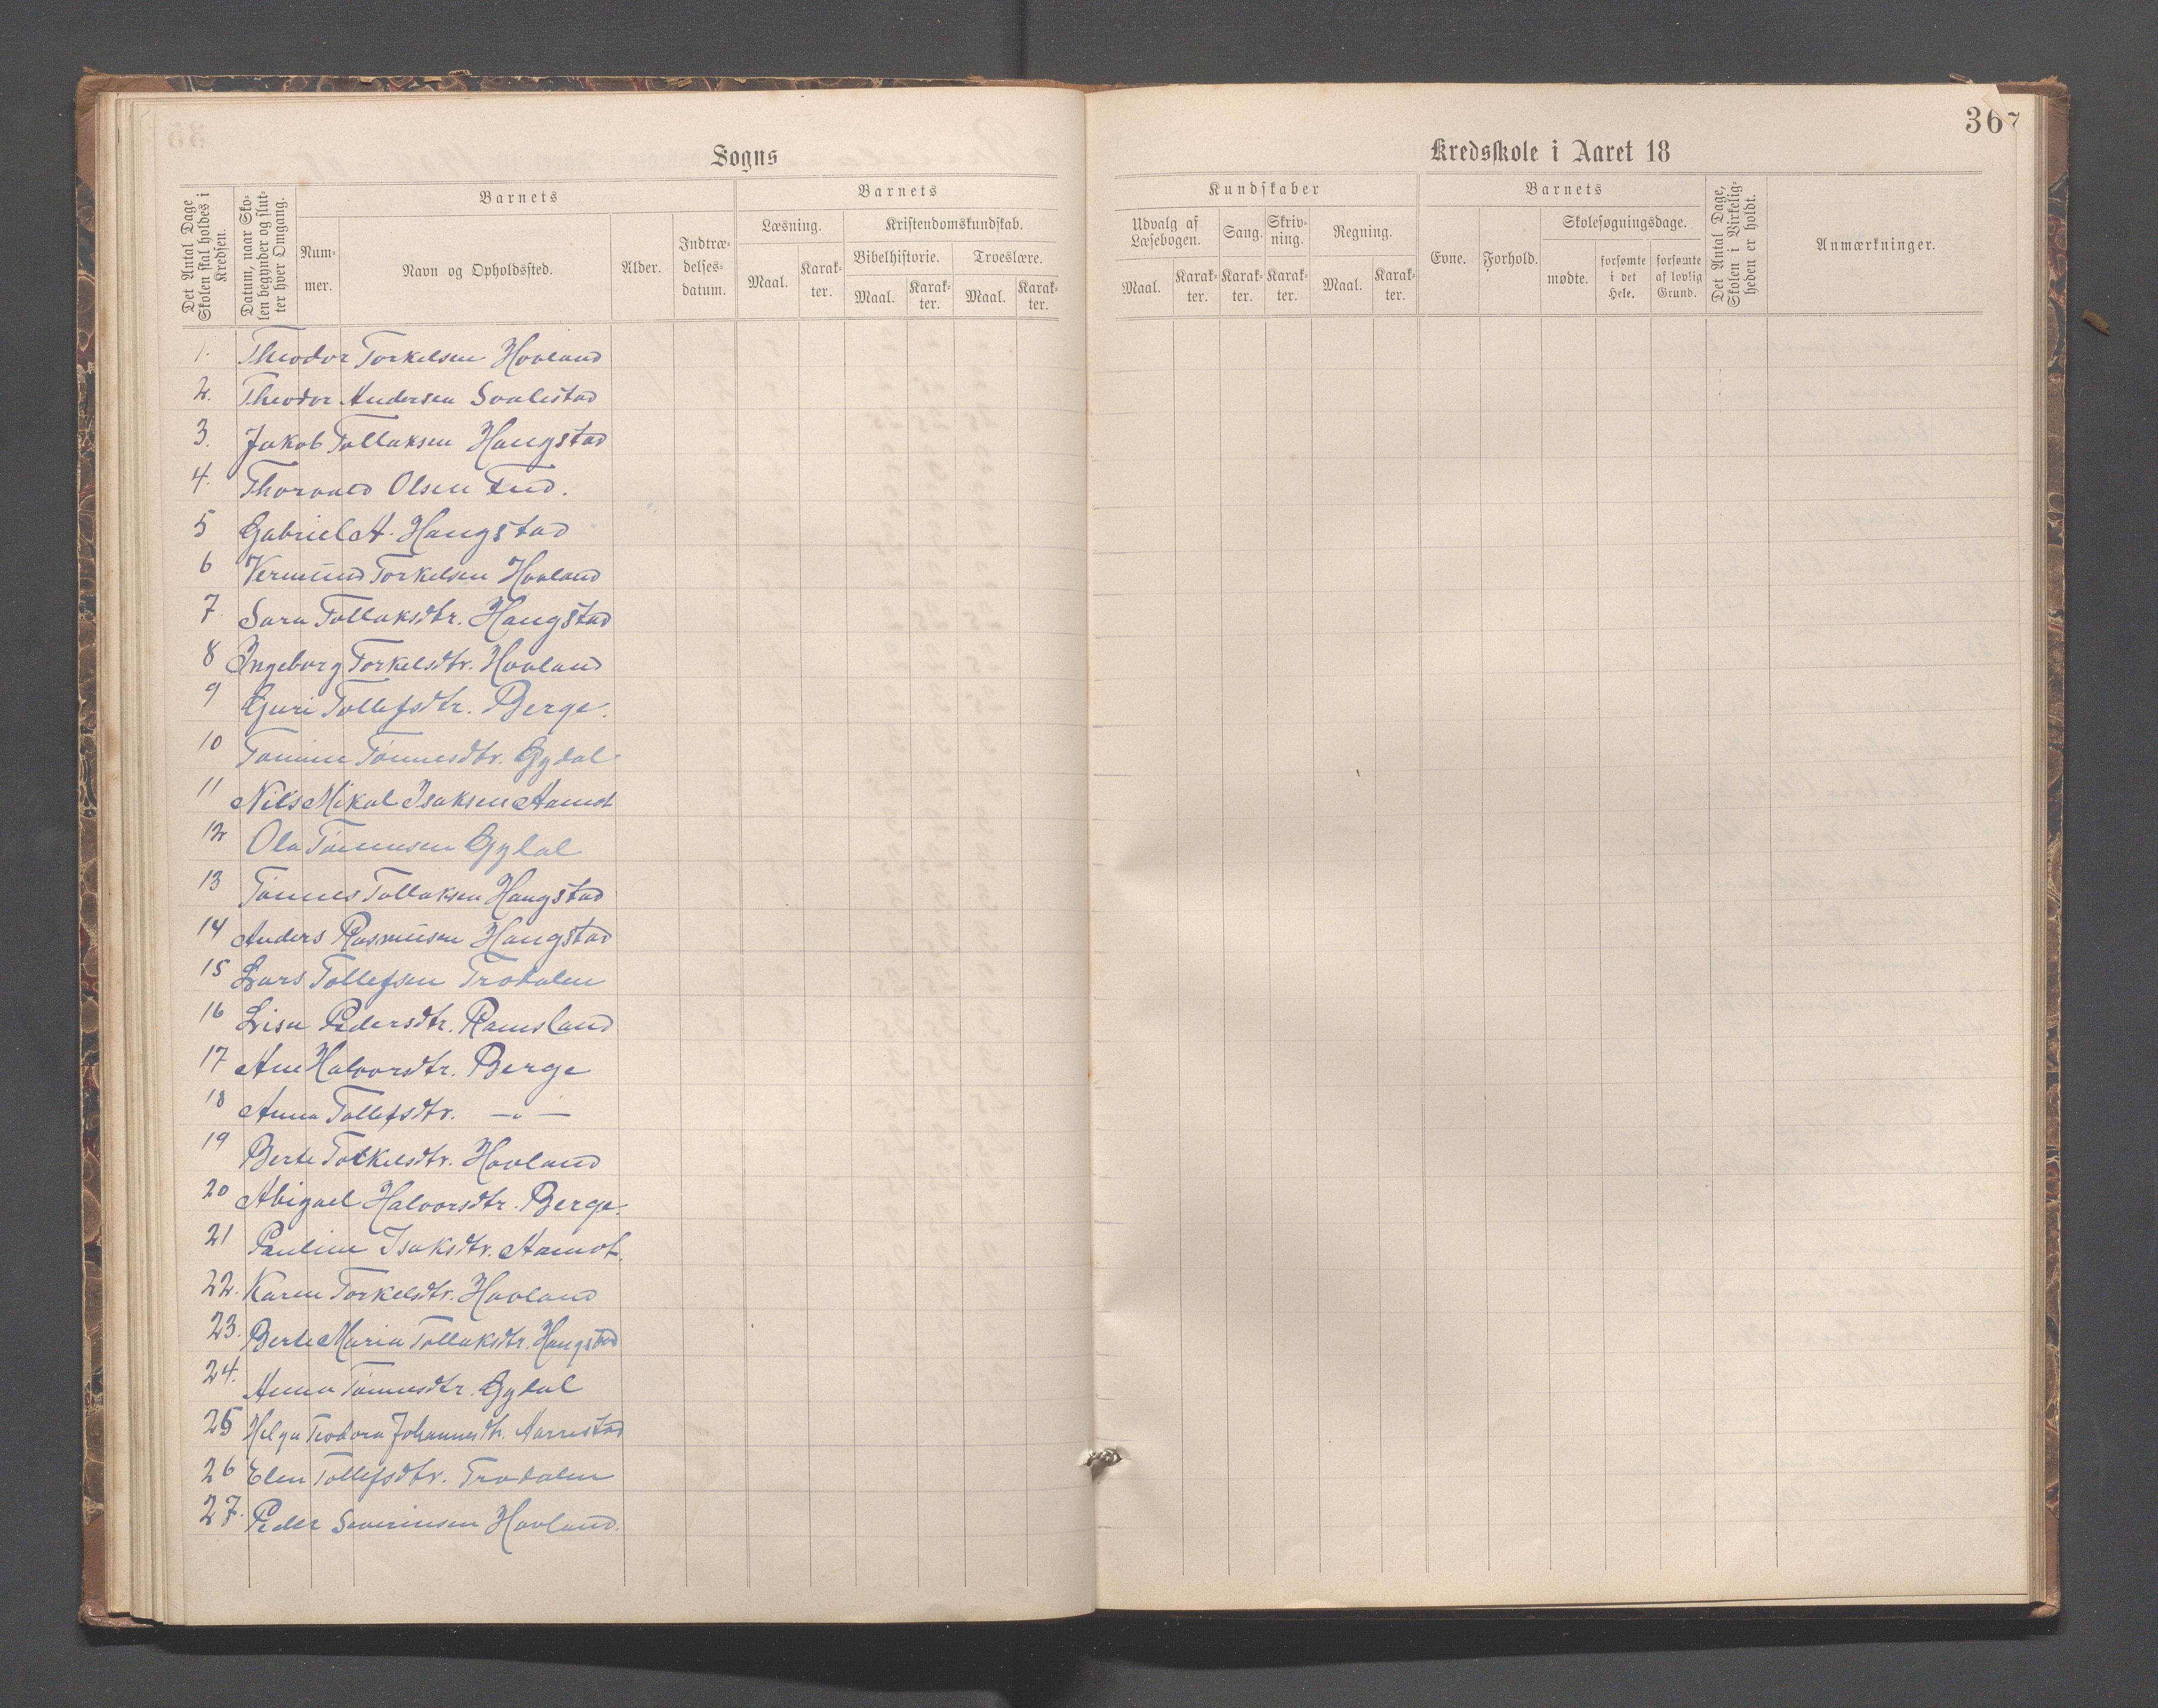 Sogns
Det Antal Dage Skolen skal holdes i Kredsen.
Datum, naar Skolen begynder og slutter hver Omgang.
Barnets
Nummer.
Navn og Opholdssted.
Alder.
Indtrædelsesdatum.
Barnets
Læsning.
Maal.
Karakter.
Kristendomskundskab.
Bibelhistorie.
Maal.
Karakter.
Troeslære.
Maal.
Karakter.
1. Theodor Torkelsen Hovland
2. Theodor Andersen Svalestad
3. Jakob Tollaksen Haugstad
4. Thorvald Olsen Eud.
5 Gabriel A. Haugstad
6 Vermund Torkelsen Hovland
7. Sara Tollaksdtr. Haugstad
8 Ingeborg Torkelsdtr. Hovland
9 Guri Tollefsdtr. Berge.
10 Tomine Tönnesdtr. Gydal.
11 Nils Mikal Isaksen Aamot
12 Ola Tönnesen Gydal
13 Tönnes Tollaksen Haugstad
14 Anders Rasmusen Haugstad
15 Lars Tollefsen Trodalen
16 Lisa Pedersdtr. Ramsland
17 Ane Halvorsdtr. Berge
18 Anna Tollefsdtr. —"—
19 Berte Torkelsdtr. Hovland
20 Abigael Halvorsdtr. Berge.
21 Pauline Isaksdtr. Aamot.
22. Karen Torkelsdtr. Hovland
23. Berte Maria Tollaksdtr. Haugstad
24. Anna Tönnesdtr. Gydal
25 Helga Teodora Johannesdtr. Aarrestad
26 Elen Tollefsdtr. Trodalen
27. Peder Severinsen Hovland.
367
Kredsskole i Aaret 18
Kundskaber
Udvalg af Læsebogen.
Maal.
Karakter.
Sang.
Karakter.
Skrivning.
Karakter.
Regning.
Maal.
Karakter.
Barnets
Evne.
Forhold.
Skolesøgningsdage.
mødte.
forsømte i det Hele.
forsømte af lovlig Grund.
Det Antal Dage, Skolen i Virkeligheden er holdt.
Anmærkninger.